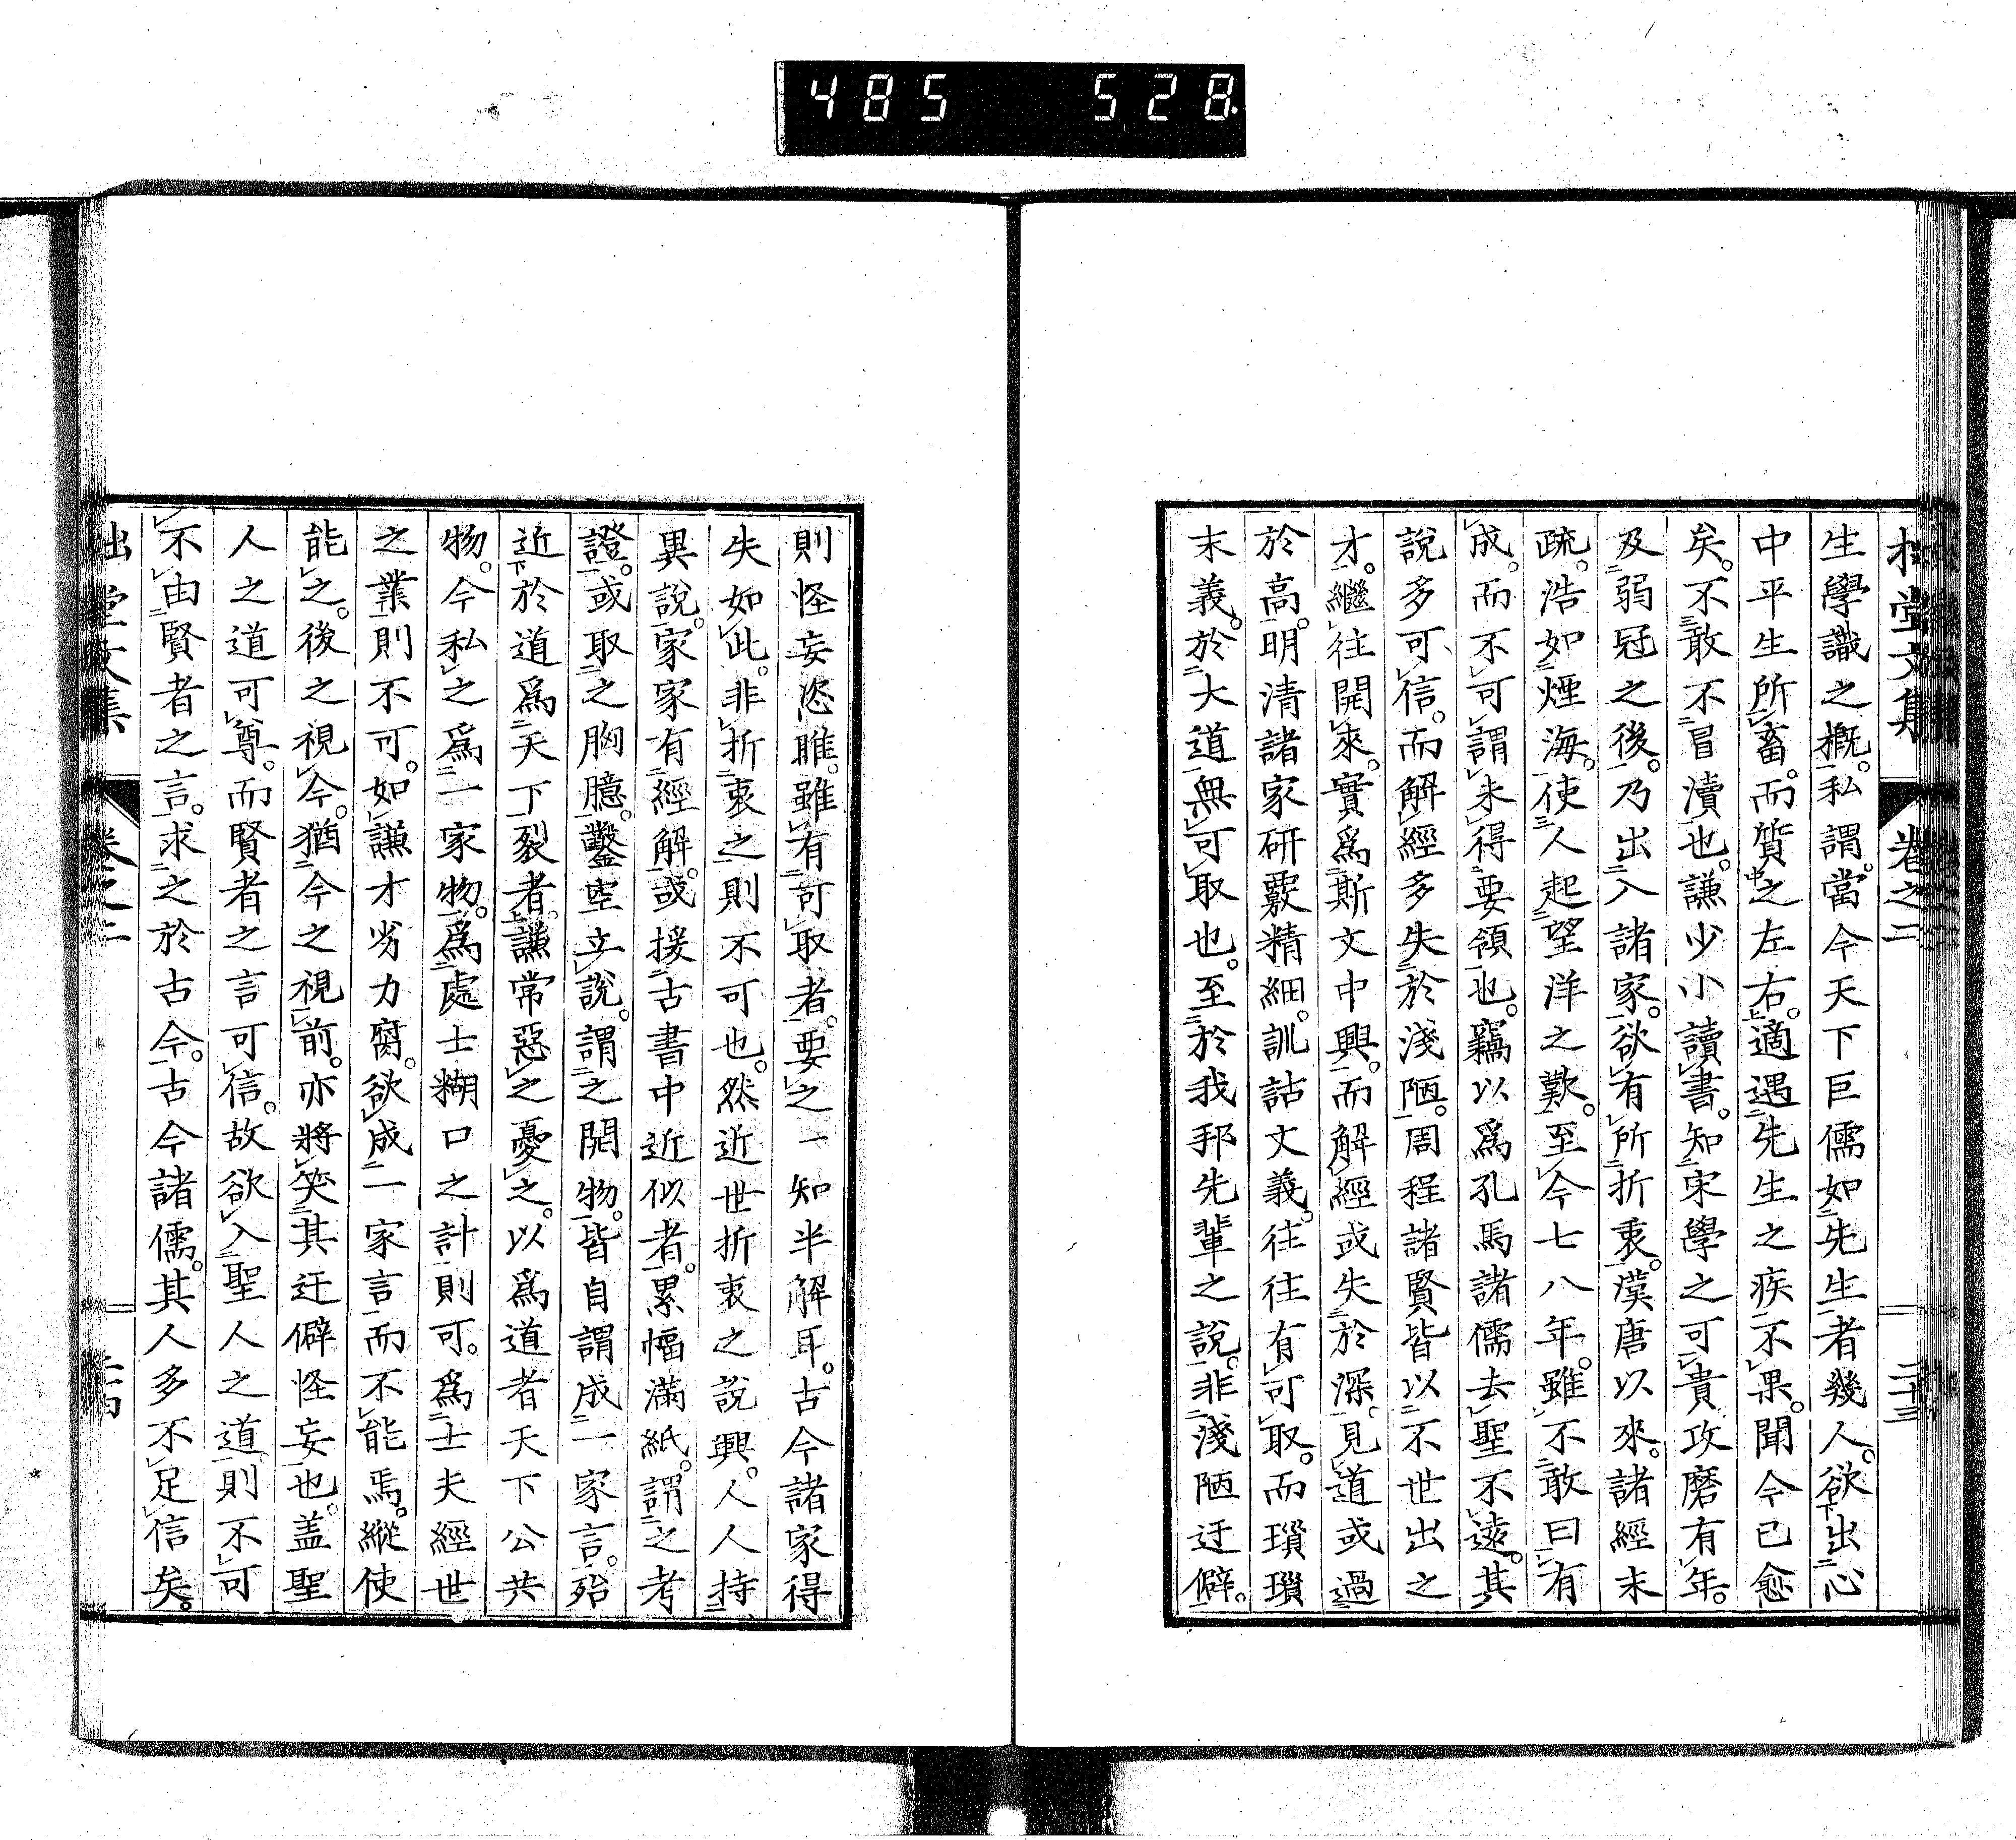 485 528
拙堂文集 卷之二 二十三
生學識之概。私謂。當今天下巨儒如先生者幾人。欲出心
中平生所畜。而質之左右。適遇先生之疾不果。聞今已愈
矣。不敢不冒瀆也。謙少小讀書。知宋學之可貴攻磨有年。
及弱冠之後。乃出入諸家。欲有所折衷。漢唐以來。諸經末
疏。浩如煙海。使人起望洋之歎。至今七八年。雖不敢曰有
成。而不可謂未得要領也。竊以爲孔馬諸儒去聖不遠。其
說多可信。而解經多失於淺陋。周程諸賢皆以不世出之
才。繼往開來。實爲斯文中興。而解經或失於深。見道或過
於高。明清諸家研覈精細。訓詁文義。往往有可取。而瑣瑣
末義。於大道無可取也。至於我邦先輩之說。非淺陋迂僻。
則怪妄恣睢。雖有可取者。要之一知半解耳。古今諸家得
失如此。非折衷之則不可也。然近世折衷之說興。人人持
異說。家家有經解。或援古書中近似者。累幅滿紙。謂之考
證。或取之胸臆。鑿空立說。謂之開物。皆自謂成一家言。殆
近於道爲天下裂者。謙常惡之憂之。以爲道者天下公共
物。今私之爲一家物。爲處士糊口之計則可。爲士夫經世
之業則不可。如謙才劣力腐。欲成一家言而不能焉。縱使
能之。後之視今。猶今之視前。亦將笑其迂僻怪妄也。盖聖
人之道可尊。而賢者之言可信。故欲入聖人之道則不可
不由賢者之言。求之於古今。古今諸儒。其人多不足信矣。
拙堂文集 卷之二